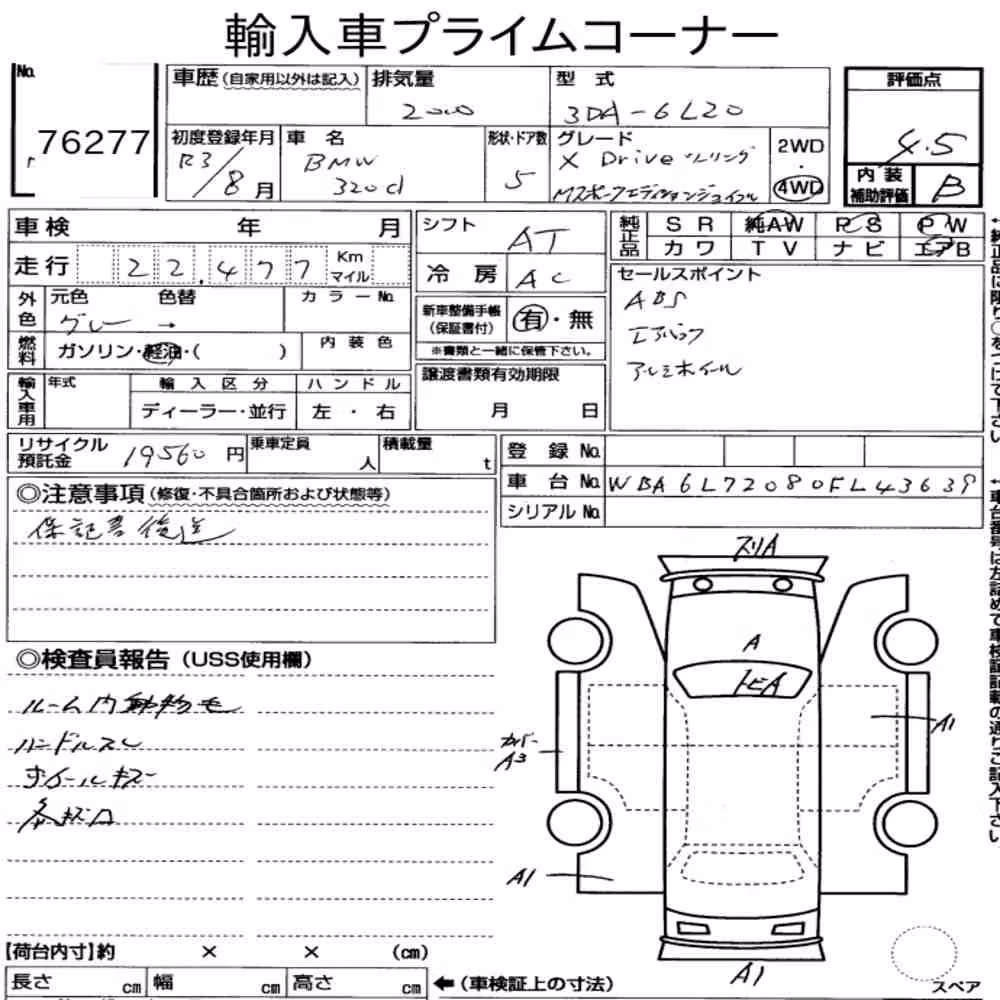 輸入車プライムコーナー
No.
76277
車歴 (自家用以外は記入)
排気量
2000
型式
3DA-6L20
評価点
4.5
初度登録年月
R3/8月
車名
BMW
320d
形状・ドア数
5
グレード
X Drive ツーリング
Mスポーツエディションジョイプル
2WD
・
4WD
内装
補助評価
B
車検 年 月
走行 22,477 Km
マイル
シフト
AT
冷房
AC
純正品
SR 純AW PS PW
カワ TV ナビ エアB
外色
元色 色替
グレー →
カラーNo.
燃料
ガソリン・軽油・( )
内装色
新車整備手帳
(保証書付)
有・無
※書類と一緒に保管下さい。
セールスポイント
ABS
エアバック
アルミホイール
輸入車用
年式
輸入区分
ディーラー・並行
ハンドル
左・右
譲渡書類有効期限
月 日
リサイクル
預託金
19560円
乗車定員
人
積載量
t
登録No.
車台No. WBA6L72080FL43639
シリアルNo.
◎注意事項(修復・不具合箇所および状態等)
保証書後送
◎検査員報告(USS使用欄)
ルーム内動物毛
ハンドルスレ
ホイールキズ
各キズ凹
スリA
A
トビA
カバー
A3
A1
A1
A1
スペア
【荷台内寸】約 × × (cm)
長さ cm 幅 cm 高さ cm
←(車検証上の寸法)
↑純正品に限り○をつけて下さい
↑車台番号は左詰めで車検証記載の通りご記入下さい。